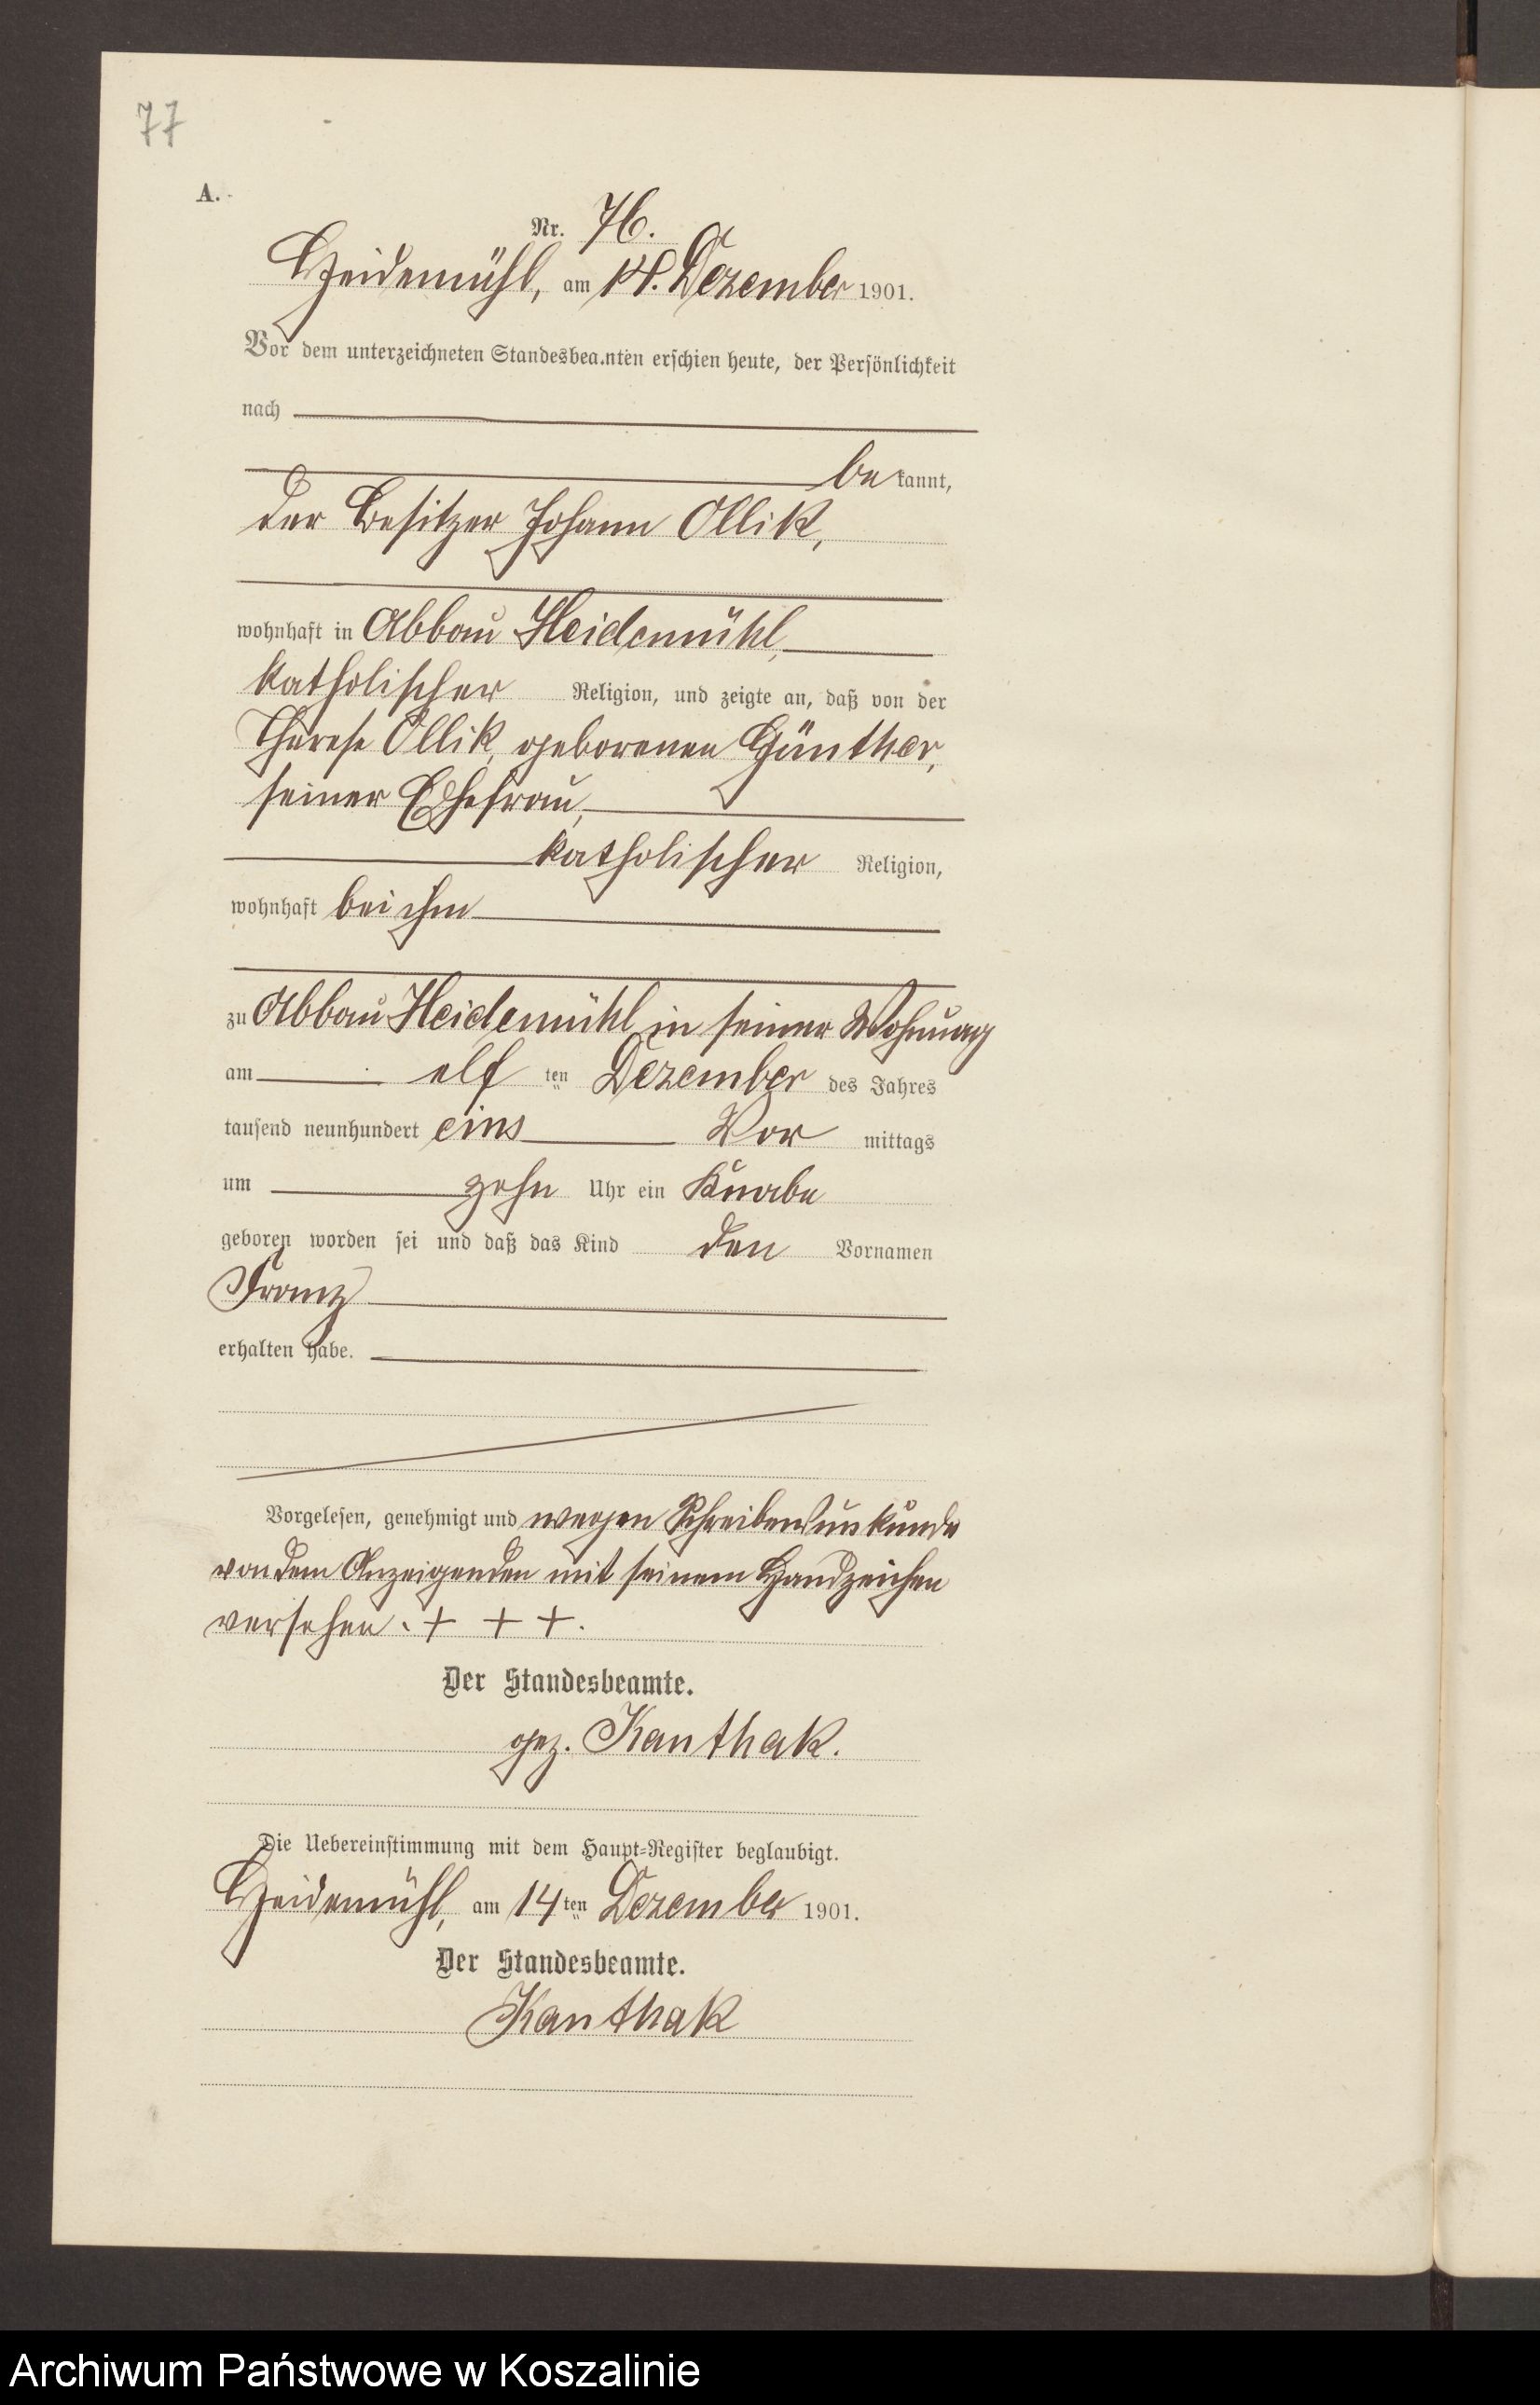 77
A.
Nr. 76.
Heidemühl, am 14. Dezember 1901.
Vor dem unterzeichneten Standesbeamten erschien heute, der Persönlichkeit
nach
bekannt,
der Besitzer Johann Ollik,
wohnhaft in Abbau Heidemühl,
katholischer Religion, und zeigte an, daß von der
Therese Ollik, geborenen Günther,
seiner Ehefrau,
katholischer Religion,
wohnhaft bei ihm
zu Abbau Heidemühl in seiner Wohnung
am elf ten Dezember des Jahres
tausend neunhundert eins Vor mittags
um zehn Uhr ein Knabe
geboren worden sei und daß das Kind den Vornamen
Franz
erhalten habe.
Vorgelesen, genehmigt und wegen Schreibensunkunde
von dem Anzeigenden mit seinem Handzeichen
versehen. + + +.
Der Standesbeamte.
gez. Kanthak.
Die Uebereinstimmung mit dem Haupt-Register beglaubigt.
Heidemühl, am 14ten Dezember 1901.
Der Standesbeamte.
Kanthak
Archiwum Państwowe w Koszalinie